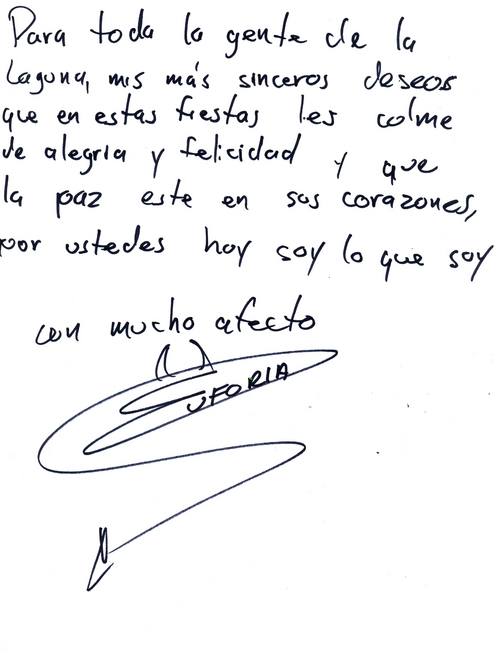 Para toda la gente de la
Laguna, mis más sinceros deseos
que en estas fiestas les colme
de alegria y felicidad y que
la paz este en sus corazones,
por ustedes hoy soy lo que soy
con mucho afecto
UFORIA